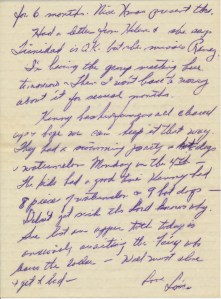 for 6 months. Nice Xmas present tho
Had a letter from Helen & she says
Trinidad is O.K. but she misses
I'm having the group meeting here
tomorrow - then I won't have to worry
about it for several months.
Kenny has
up & hope we can keep it that way
They had a swimming party - hot dogs
& watermelon Monday on the 4th -
The kids had a good time. Kenny had
8 pieces of watermelon & 9 hot dogs -
Didn't get sick the Lord knows why
Sue lost an upper tooth today is
anxiously awaiting the fairy who
leaves the dollar - Well must close
& get to bed -
Love
Lois